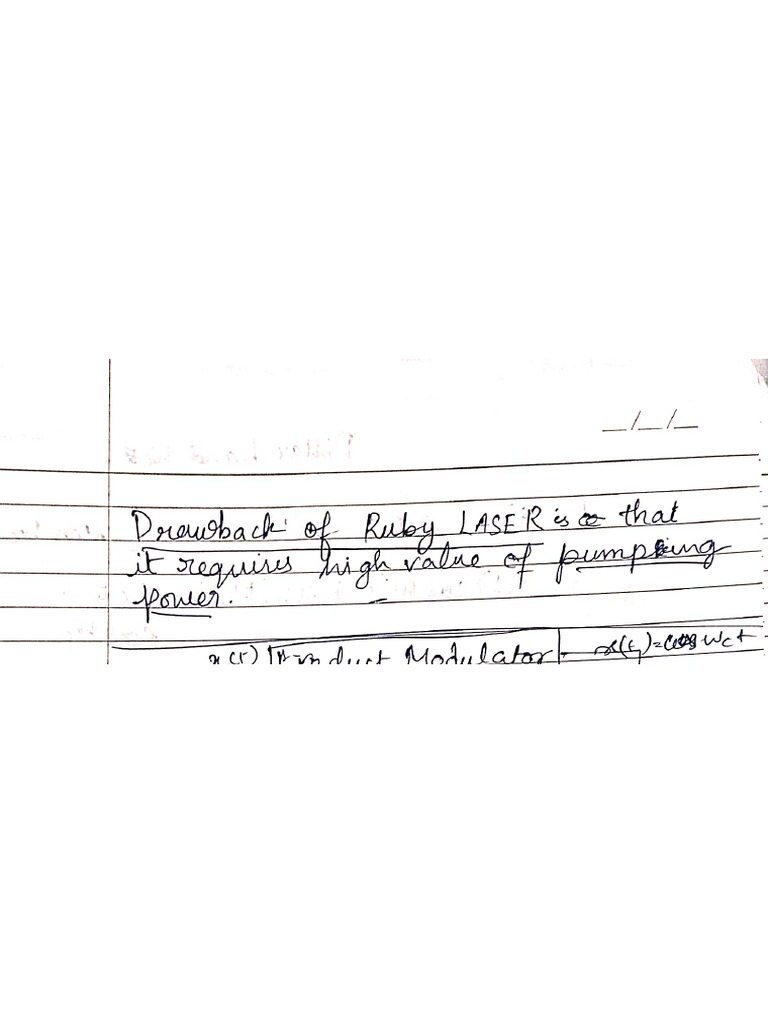 _/_/_
Drawback of Ruby LASER is that
it requires high value of pumping
power. –
x(t) Product Modulator x(t)=cos wct